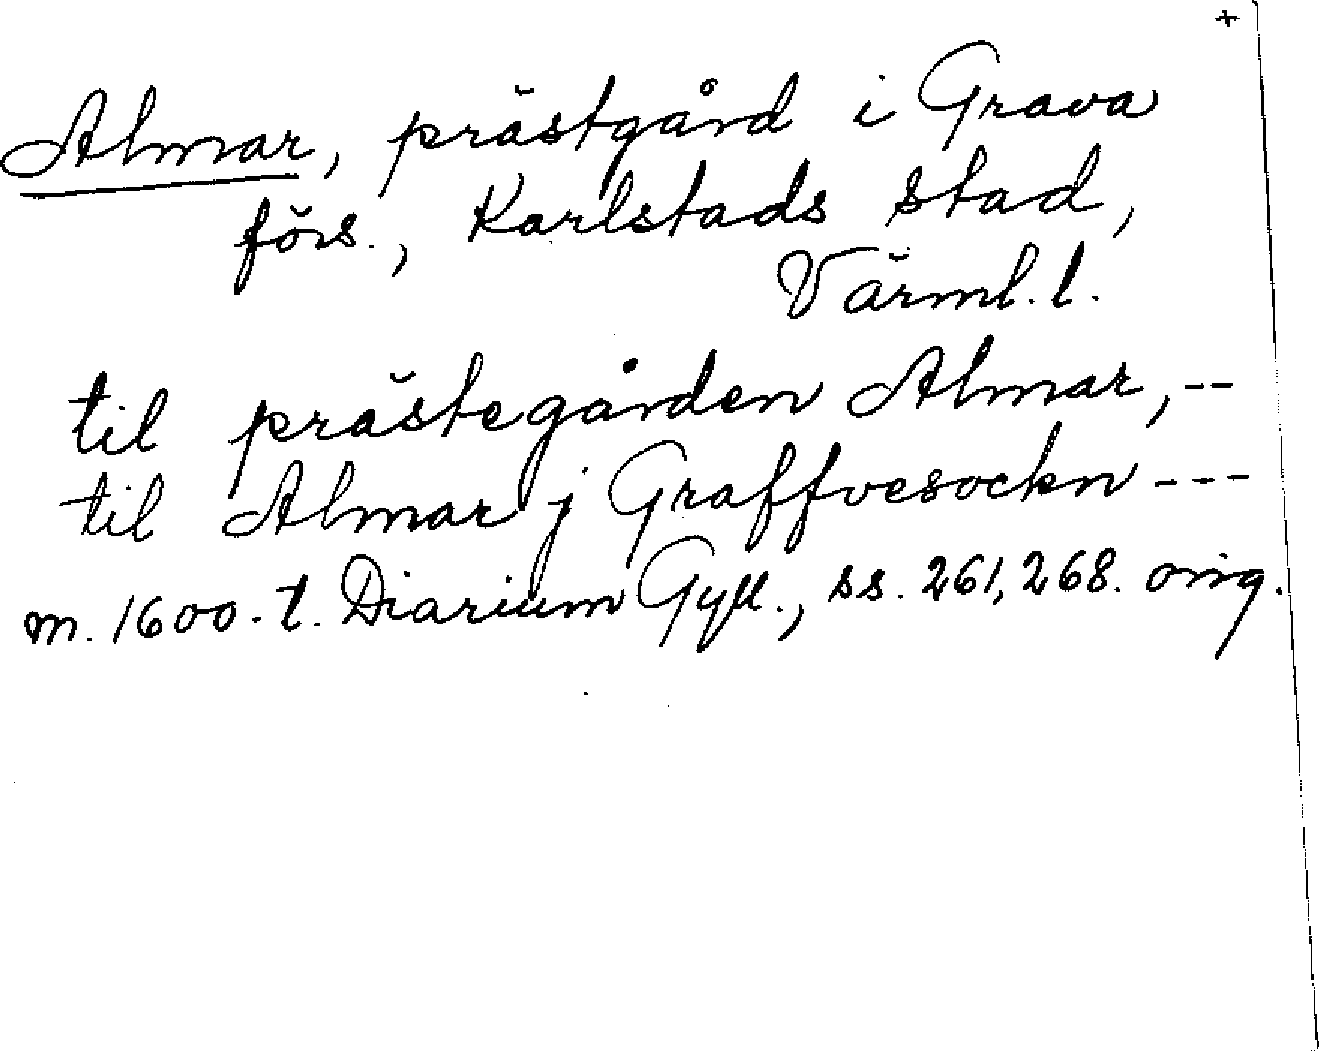 +
Almar, prästgård i Grava
förs., Karlstads stad,
Värml. l.
til prästegården Almar, --
til Almar j Graffvesockn ---
m. 1600-t. Diarium Gyll., ss. 261, 268. orig.